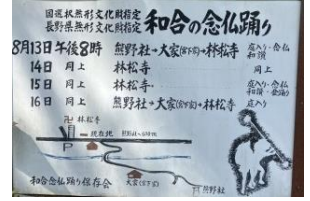 国選択無形文化財指定
長野県無形文化財指定
和合の念仏踊り
8月13日午後8時 熊野社→大家(宮下家)→林松寺 庭入り・念仏 和讃
14日 同上 林松寺 同上
15日 同上 林松寺 庭入り・念仏
16日 同上 熊野社→大家(宮下家)→林松寺 庭入り
卍 林松寺
現在地
大家(宮下家)
熊野社
和合念仏踊り保存会